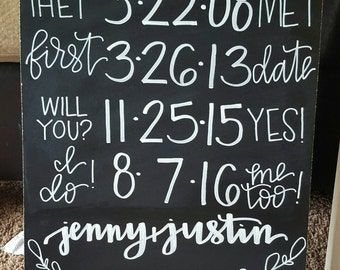 THEY 5·22·08 MET!
first 3·26·13 date
WILL YOU? 11·25·15 YES!
I do! 8·7·16 me too!
jenny + justin